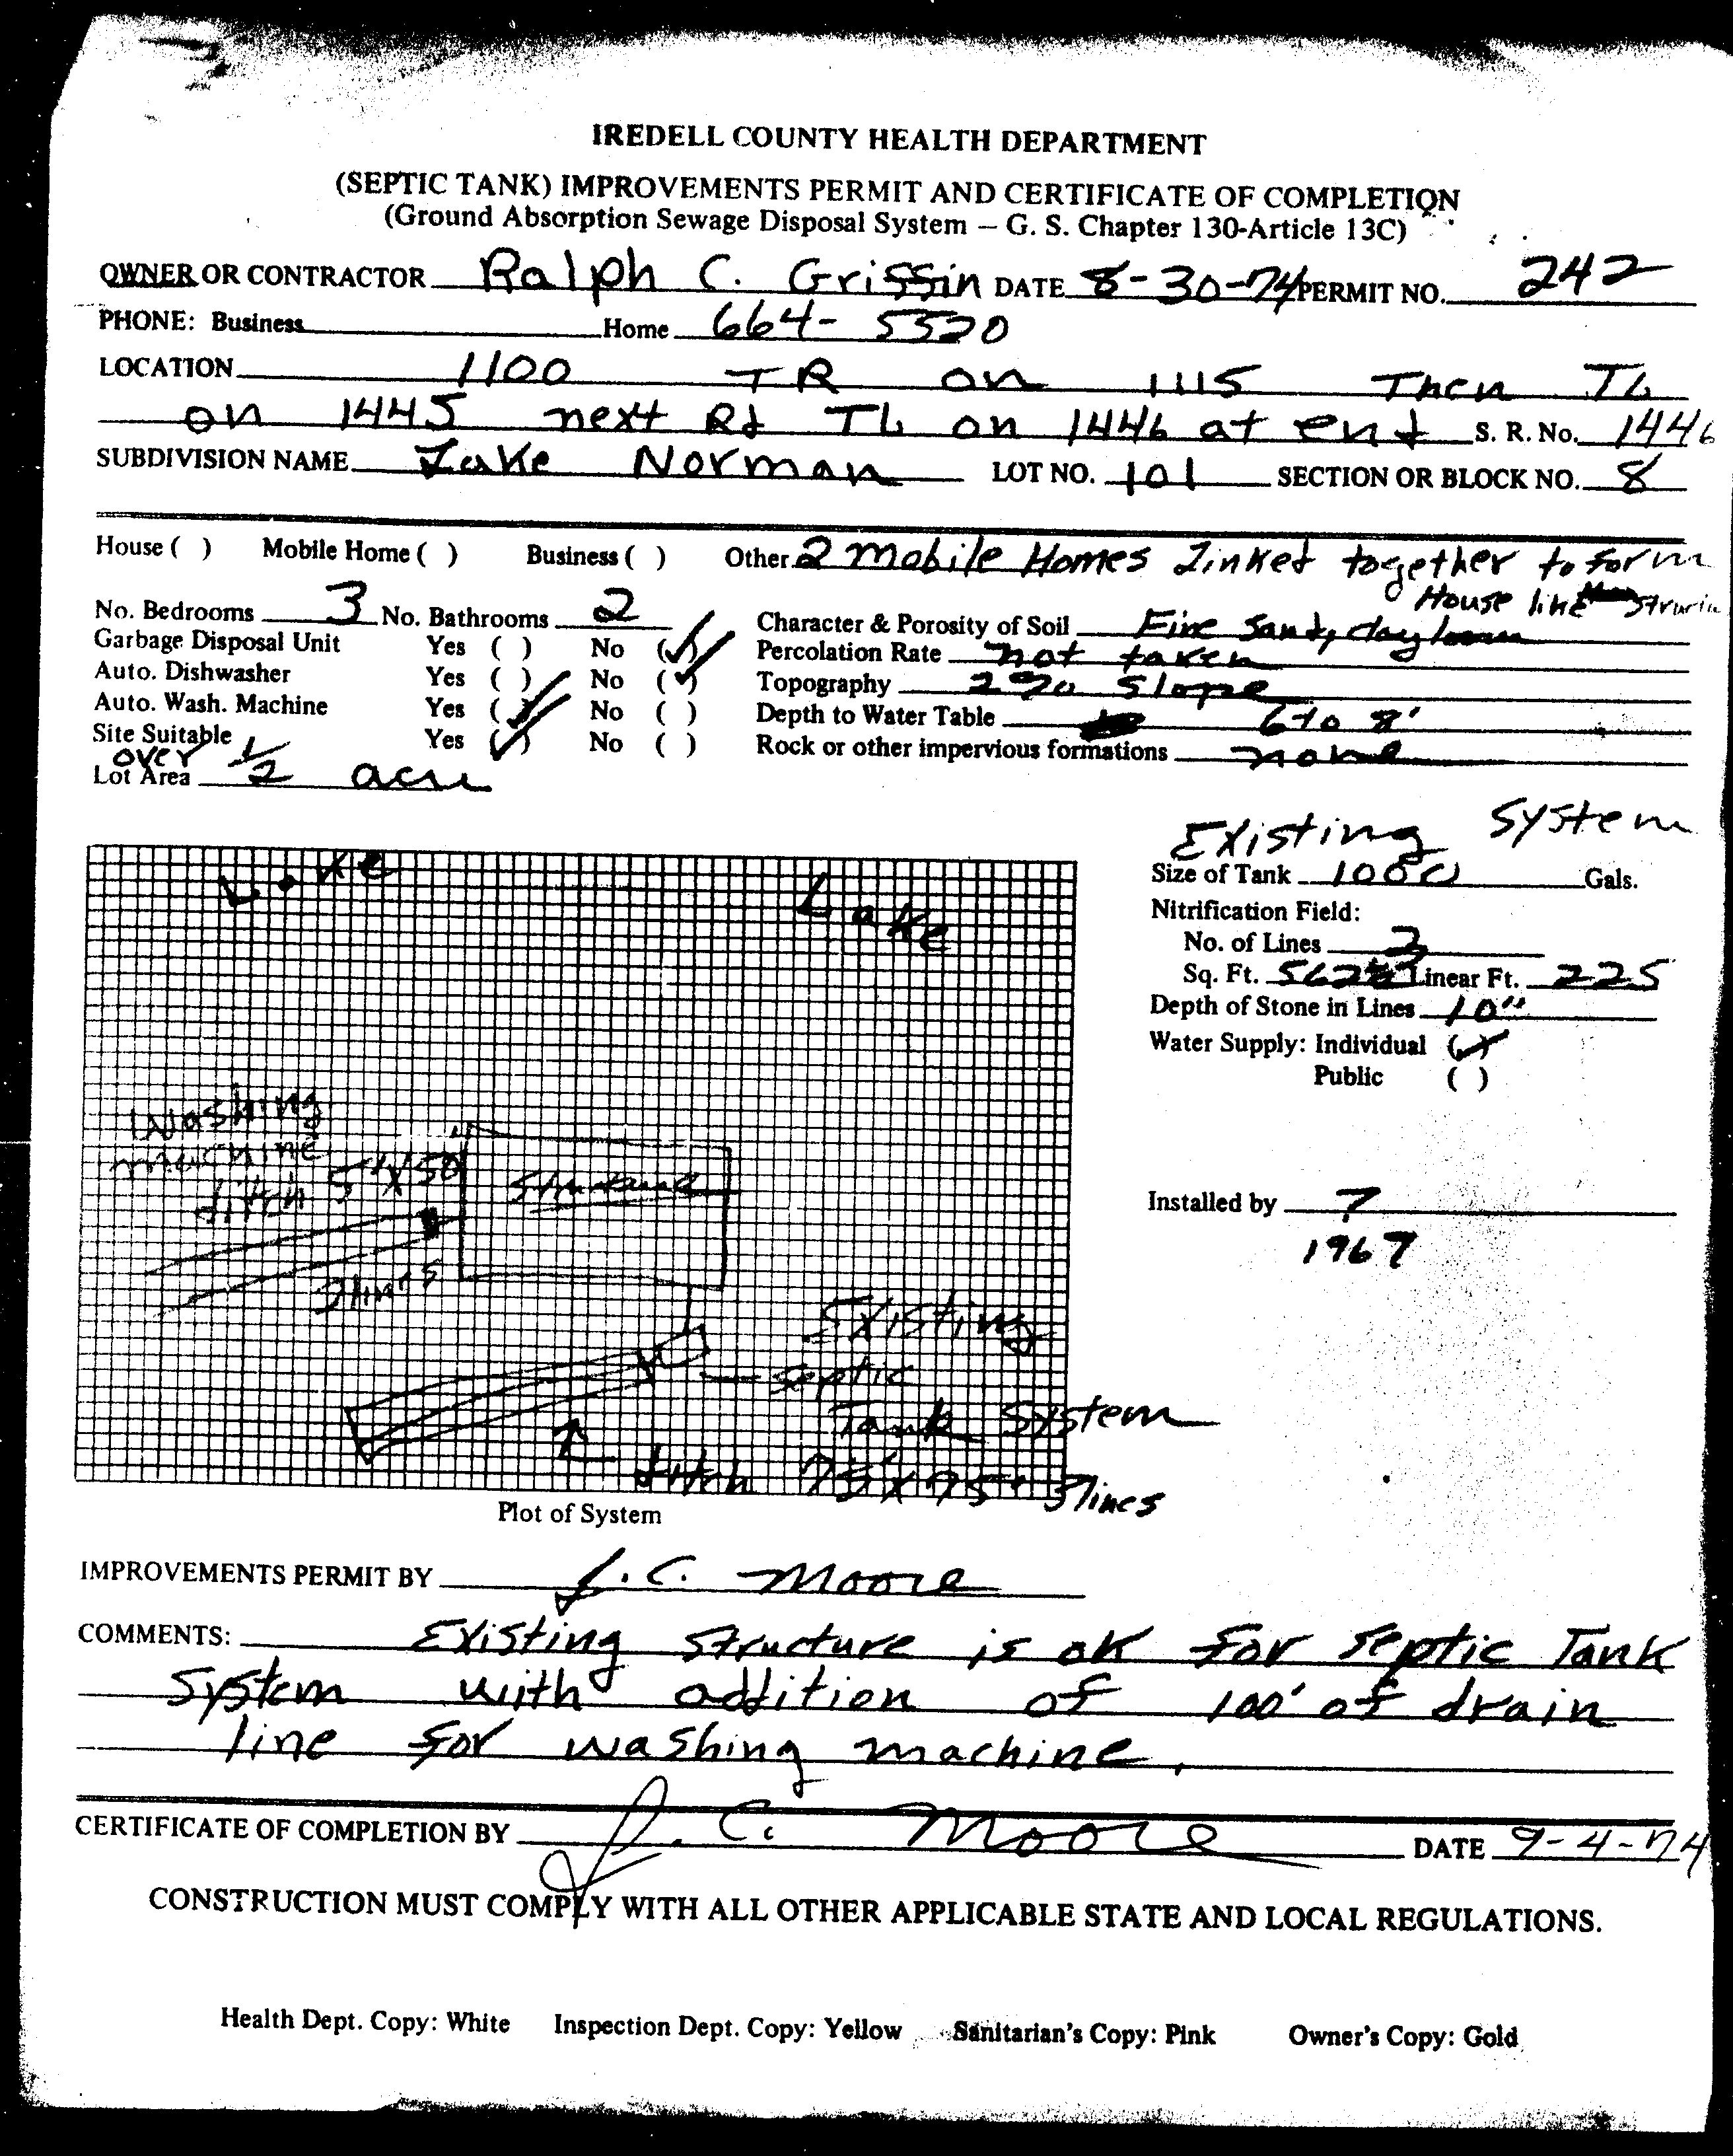 IREDELL COUNTY HEALTH DEPARTMENT
(SEPTIC TANK) IMPROVEMENTS PERMIT AND CERTIFICATE OF COMPLETION
(Ground Absorption Sewage Disposal System – G. S. Chapter 130-Article 13C)
OWNER OR CONTRACTOR Ralph C. Griffin DATE 8-30-74 PERMIT NO. 242
PHONE: Business Home 664-5320
LOCATION 1100 TR on 1115 Then TL
on 1445 next Rd TL on 1446 at end S. R. No. 1446
SUBDIVISION NAME Lake Norman LOT NO. 101 SECTION OR BLOCK NO. 8
House ( ) Mobile Home ( ) Business ( ) Other 2 mobile Homes Linked together to form
House like
No. Bedrooms 3 No. Bathrooms 2 Character & Porosity of Soil Fine Sandy clay loam
Garbage Disposal Unit Yes ( ) No (✓) Percolation Rate not taken
Auto. Dishwasher Yes ( ) No (✓) Topography 2% Slope
Auto. Wash. Machine Yes (✓) No ( ) Depth to Water Table 6 to 8'
Site Suitable Yes (✓) No ( ) Rock or other impervious formations none
over
Lot Area 1/2 acre
Existing System
Size of Tank 1000 Gals.
Nitrification Field:
No. of Lines 3
Sq. Ft. Linear Ft. 225
Depth of Stone in Lines 10"
Water Supply: Individual (✓)
Public ( )
Installed by ?
1967
Lake
Lake
Washing
machine
ditch 5'x50
Structure
3 lines
Existing
Septic
Tank System
ditch 75'x75' 3 lines
Plot of System
IMPROVEMENTS PERMIT BY J. C. Moore
COMMENTS: Existing Structure is ok for Septic Tank
System with addition of 100' of drain
line for washing machine.
CERTIFICATE OF COMPLETION BY J. C. Moore DATE 9-4-74
CONSTRUCTION MUST COMPLY WITH ALL OTHER APPLICABLE STATE AND LOCAL REGULATIONS.
Health Dept. Copy: White Inspection Dept. Copy: Yellow Sanitarian's Copy: Pink Owner's Copy: Gold